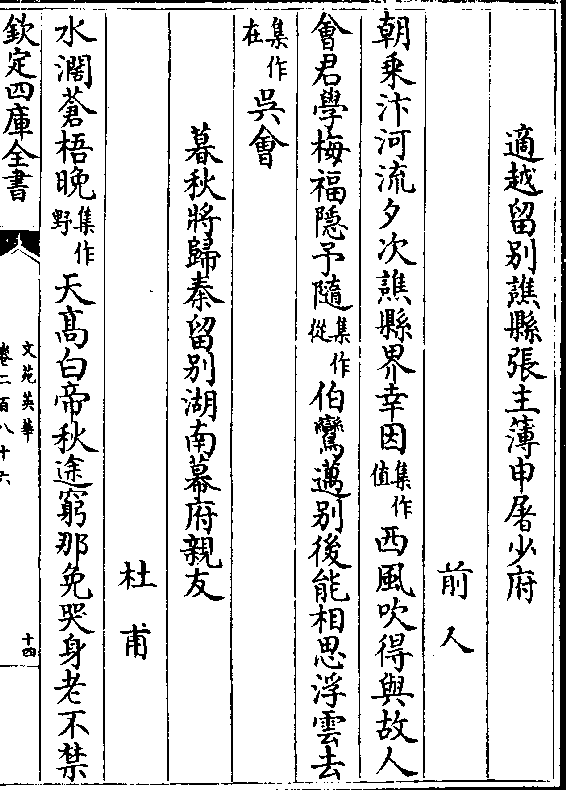 適越留别譙縣張主簿申屠少府
前人
朝乘汴河流夕次譙縣界幸因集作值西風吹得與故人
會君學梅福隱予隨集作從伯鸞邁别後能相思浮雲去
集作在吳會
暮秋將歸秦留别湖南幕府親友
杜甫
水濶蒼梧晚集作野天髙白帝秋途窮那免哭身老不禁
欽定四庫全書
文苑英華
卷二百八十六
十四